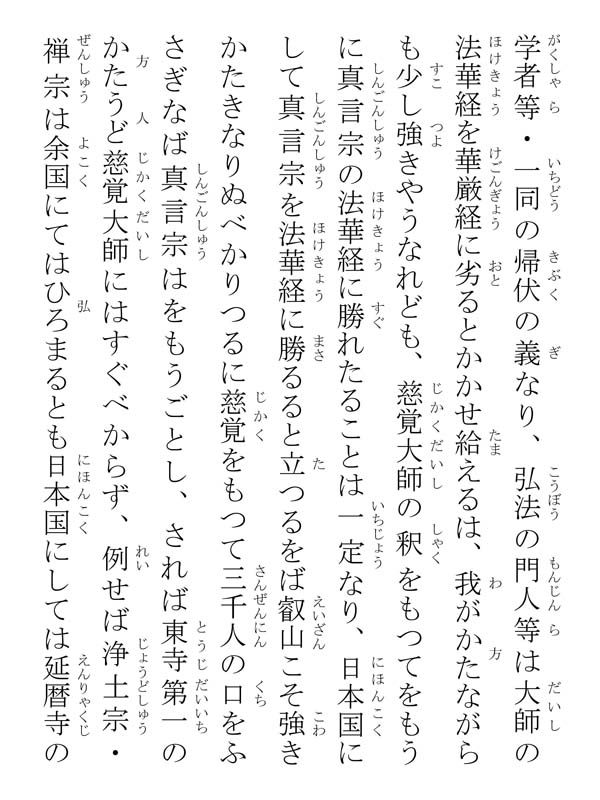 学者等・一同の帰伏の義なり、弘法の門人等は大師の
法華経を華厳経に劣るとかかせ給えるは、我がかたながら
も少し強きやうなれども、慈覚大師の釈をもつてをもう
に真言宗の法華経に勝れたることは一定なり、日本国に
して真言宗を法華経に勝るると立つるをば叡山こそ強き
かたきなりぬべかりつるに慈覚をもつて三千人の口をふ
さぎなば真言宗はをもうごとし、されば東寺第一の
かたうど慈覚大師にはすぐべからず、例せば浄土宗・
禅宗は余国にてはひろまるとも日本国にしては延暦寺の